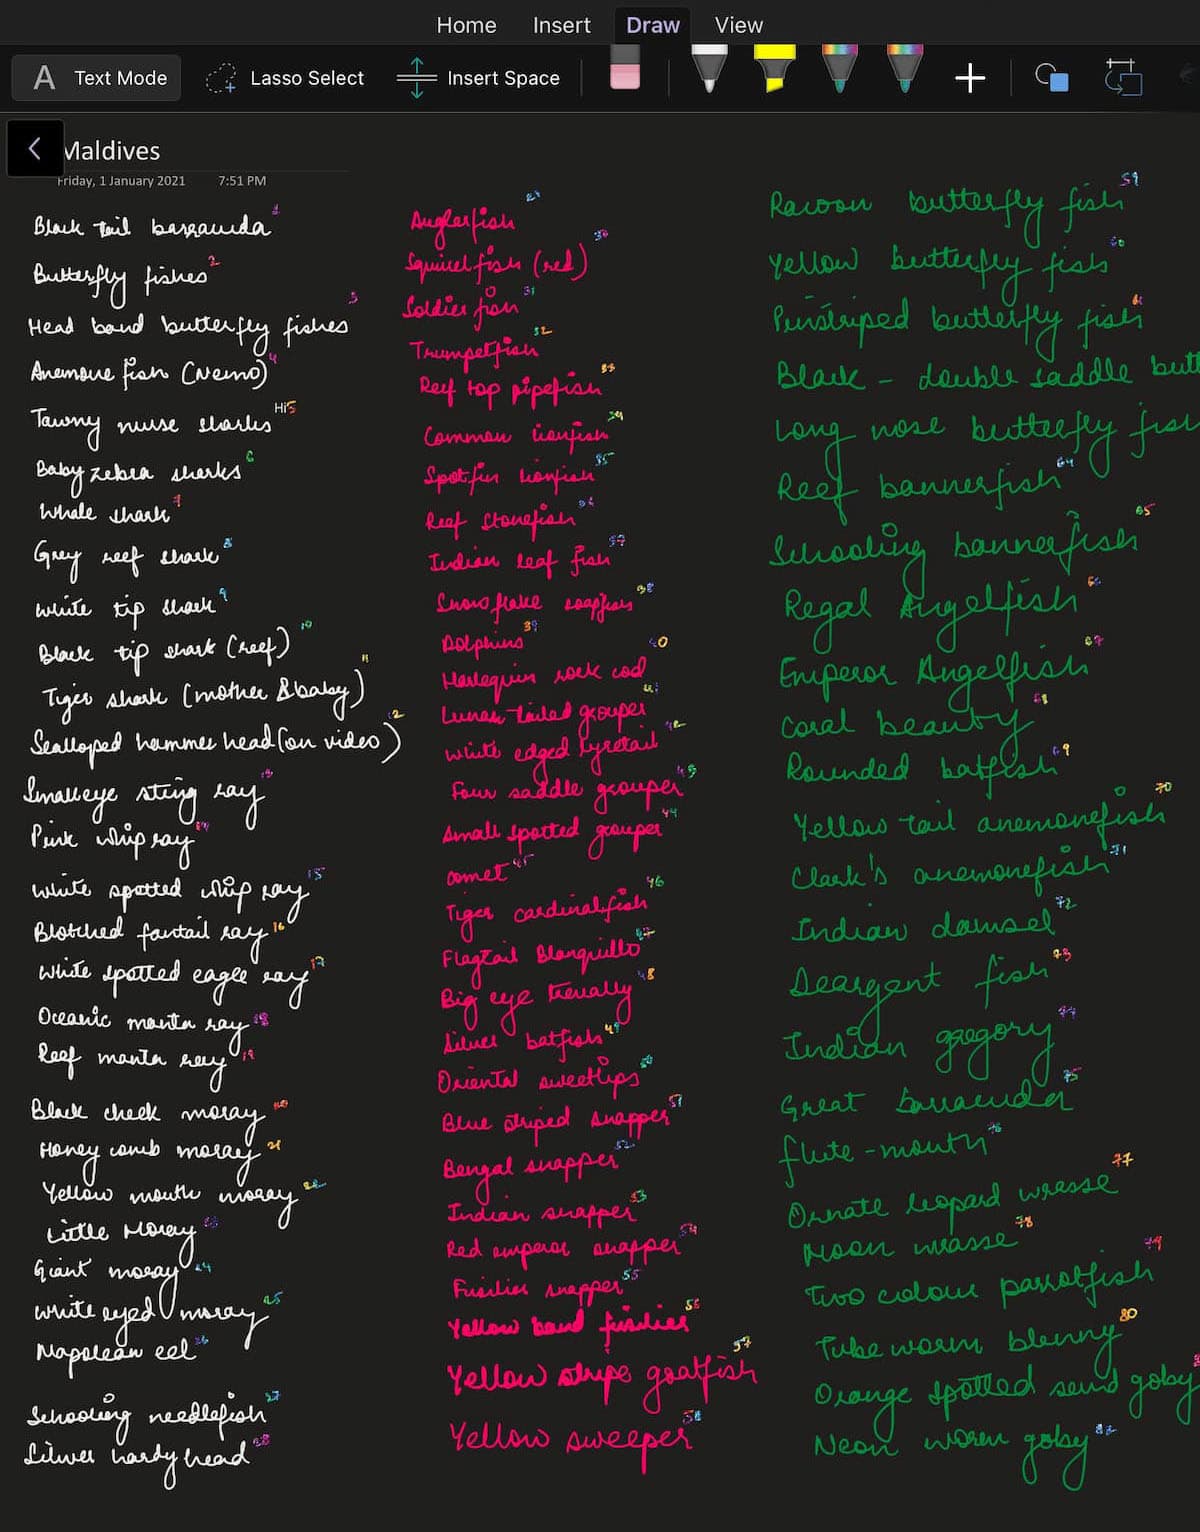 Home Insert Draw View
A Text Mode Lasso Select Insert Space
Maldives
Friday, 1 January 2021 7:51 PM
Black tail barracuda 1
Butterfly fishes 2
Head band butterfly fishes 3
Anemone fish (Nemo) 4
Tawny nurse sharks Hi5
Baby zebra sharks 6
Whale shark 7
Grey reef shark 8
White tip shark 9
Black tip shark (reef) 10
Tiger shark (mother & baby) 11
Scalloped hammer head (on video) 12
Smalleye sting ray 13
Pink whip ray 14
White spotted whip ray 15
Blotched fantail ray 16
White spotted eagle ray 17
Oceanic manta ray 18
Reef manta ray 19
Black cheek moray 20
Honey comb moray 21
Yellow mouth moray 22
Little Moray 23
Giant moray 24
White eyed moray 25
Napolean eel 26
Schooling needlefish 27
Silver hardy head 28
Anglerfish 29
Squirrel fish (red) 30
Soldier fish 31
Trumpetfish 32
Reef top pipefish 33
Common lionfish 34
Spotfin lionfish 35
Reef Stonefish 36
Indian leaf fish 37
Snow flake soapfish 38
Dolphins 39
Harlequin rock cod 40
Lunar tailed grouper 41
White edged lyretail 42
Four saddle grouper 43
Small spotted grouper 44
Comet 45
Tiger cardinalfish 46
Flagtail Blanquillo 47
Big eye trevally 48
Silver batfish 49
Oriental sweetlips 50
Blue striped snapper 51
Bengal snapper 52
Indian snapper 53
Red emperor snapper 54
Fusilier snapper 55
Yellow band fusilier 56
Yellow stripe goatfish 57
Yellow sweeper 58
Racoon butterfly fish 59
Yellow butterfly fish 60
Pinstriped butterfly fish 61
Black - double saddle butt
Long nose butterfly fish
Reef bannerfish 64
Schooling bannerfish 65
Regal Angelfish 66
Emperor Angelfish 67
Coral beauty 68
Rounded batfish 69
Yellow tail anemonefish 70
Clark's anemonefish 71
Indian damsel 72
Seargent fish 73
Indian gregory 74
Great barracuda 75
flute-mouth 76
Ornate leopard wrasse 77
Moon wrasse 78
Two colour parrotfish 79
Tube worm blenny 80
Orange spotted sand goby
Neon worm goby 82